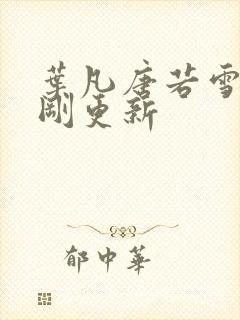 葉凡唐若雪
剛更新
郁中華